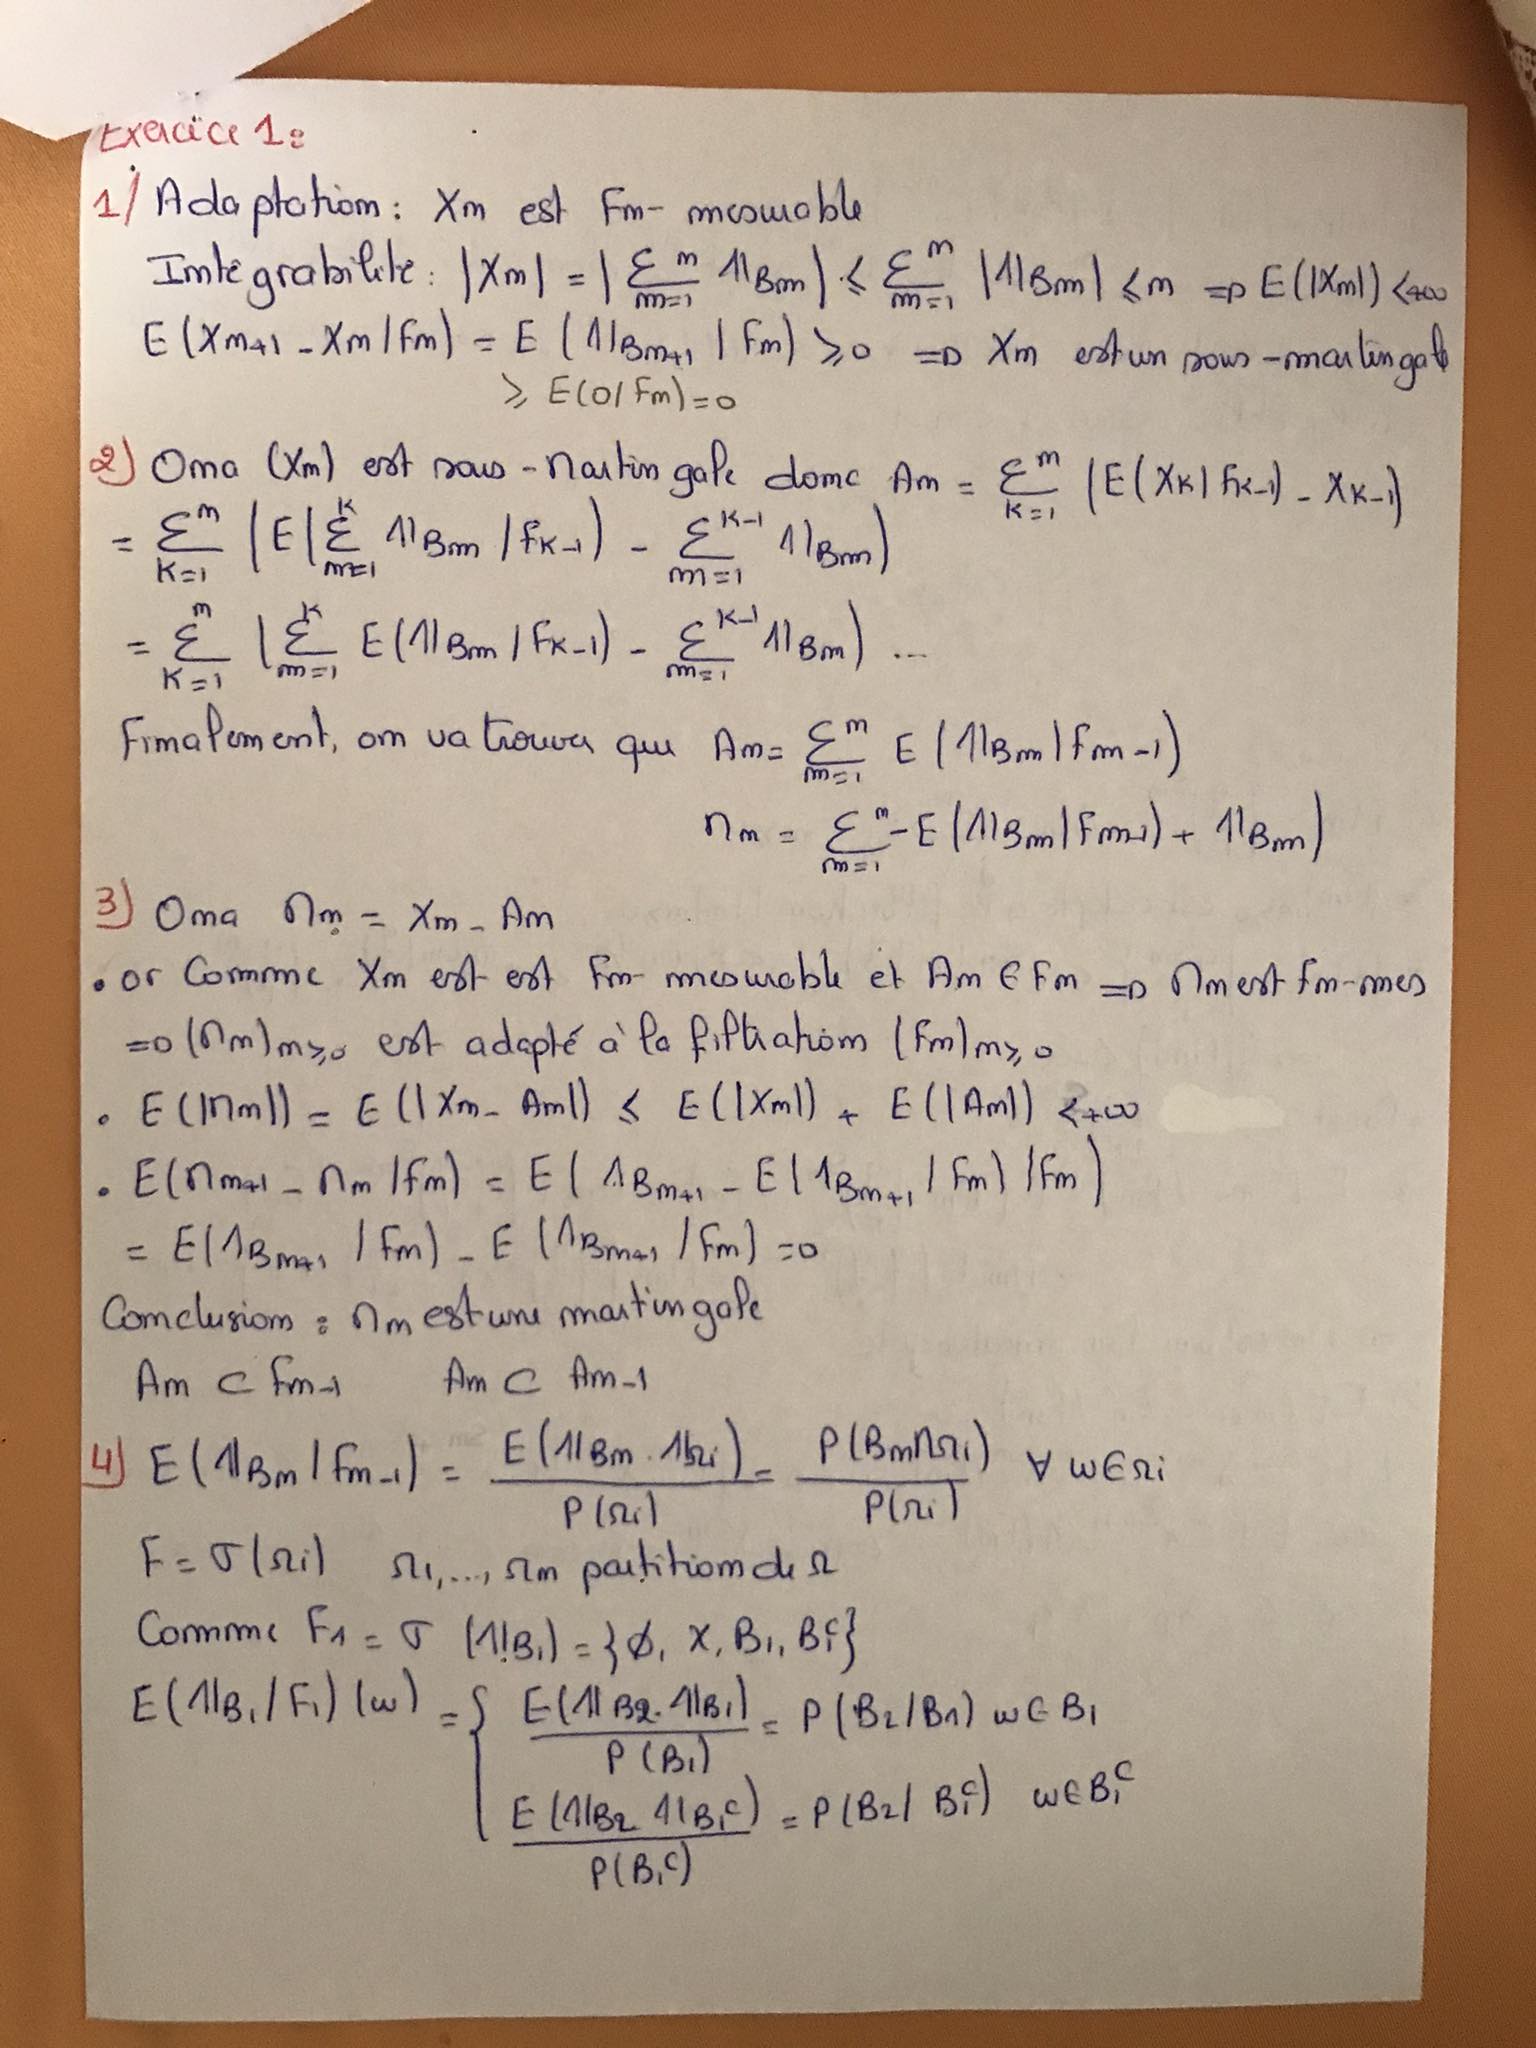 Exercice 1:
1/ Adaptation: Xm est Fm- mesurable
Intégrabilité: |Xm| = |Σ_{m=1}^m 1l_Bm| ≤ Σ_{m=1}^m |1l_Bm| ≤ m => E(|Xm|) < +∞
E(Xm+1 - Xm / Fm) = E(1l_Bm+1 | Fm) ≥ 0 => Xm est un sous-martingale
≥ E(0/Fm) = 0
2) Ona (Xm) est sous-Martingale donc Am = Σ_{k=1}^m (E(Xk | Fk-1) - Xk-1)
= Σ_{k=1}^m (E(Σ_{m=1}^k 1l_Bm / Fk-1) - Σ_{m=1}^{k-1} 1l_Bm)
= Σ_{k=1}^m (Σ_{m=1}^k E(1l_Bm / Fk-1) - Σ_{m=1}^{k-1} 1l_Bm) ...
Finalement, on va trouver que Am = Σ_{m=1}^m E(1l_Bm | Fm-1)
Mm = Σ_{m=1}^m - E(1l_Bm | Fm-1) + 1l_Bm)
3) Ona Mm = Xm - Am
• or Comme Xm est est Fm- mesurable et Am ∈ Fm => Mm est Fm-mes
=> (Mm)m≥0 est adapté à la filtration (Fm)m≥0
• E(|Mm|) = E(|Xm - Am|) ≤ E(|Xm|) + E(|Am|) < +∞
• E(Mm+1 - Mm / Fm) = E(1_Bm+1 - E(1_Bm+1 / Fm) / Fm)
= E(1_Bm+1 / Fm) - E(1_Bm+1 / Fm) = 0
Conclusion: Mm est une martingale
Am ⊂ Fm-1 Am ⊂ Am-1
4) E(1l_Bm | Fm-1) = E(1l_Bm . 1l_Ωi) / P(Ωi) = P(Bm ∩ Ωi) / P(Ωi) ∀ w ∈ Ωi
F = σ(Ωi) Ω1, ..., Ωm partition de Ω
Comme F1 = σ(1l_B1) = {∅, X, B1, B1^c}
E(1l_B1 / F1)(w) = { E(1l_B2 . 1l_B1) / P(B1) = P(B2/B1) w ∈ B1
E(1l_B2 1l_B1^c) / P(B1^c) = P(B2 / B1^c) w ∈ B1^c